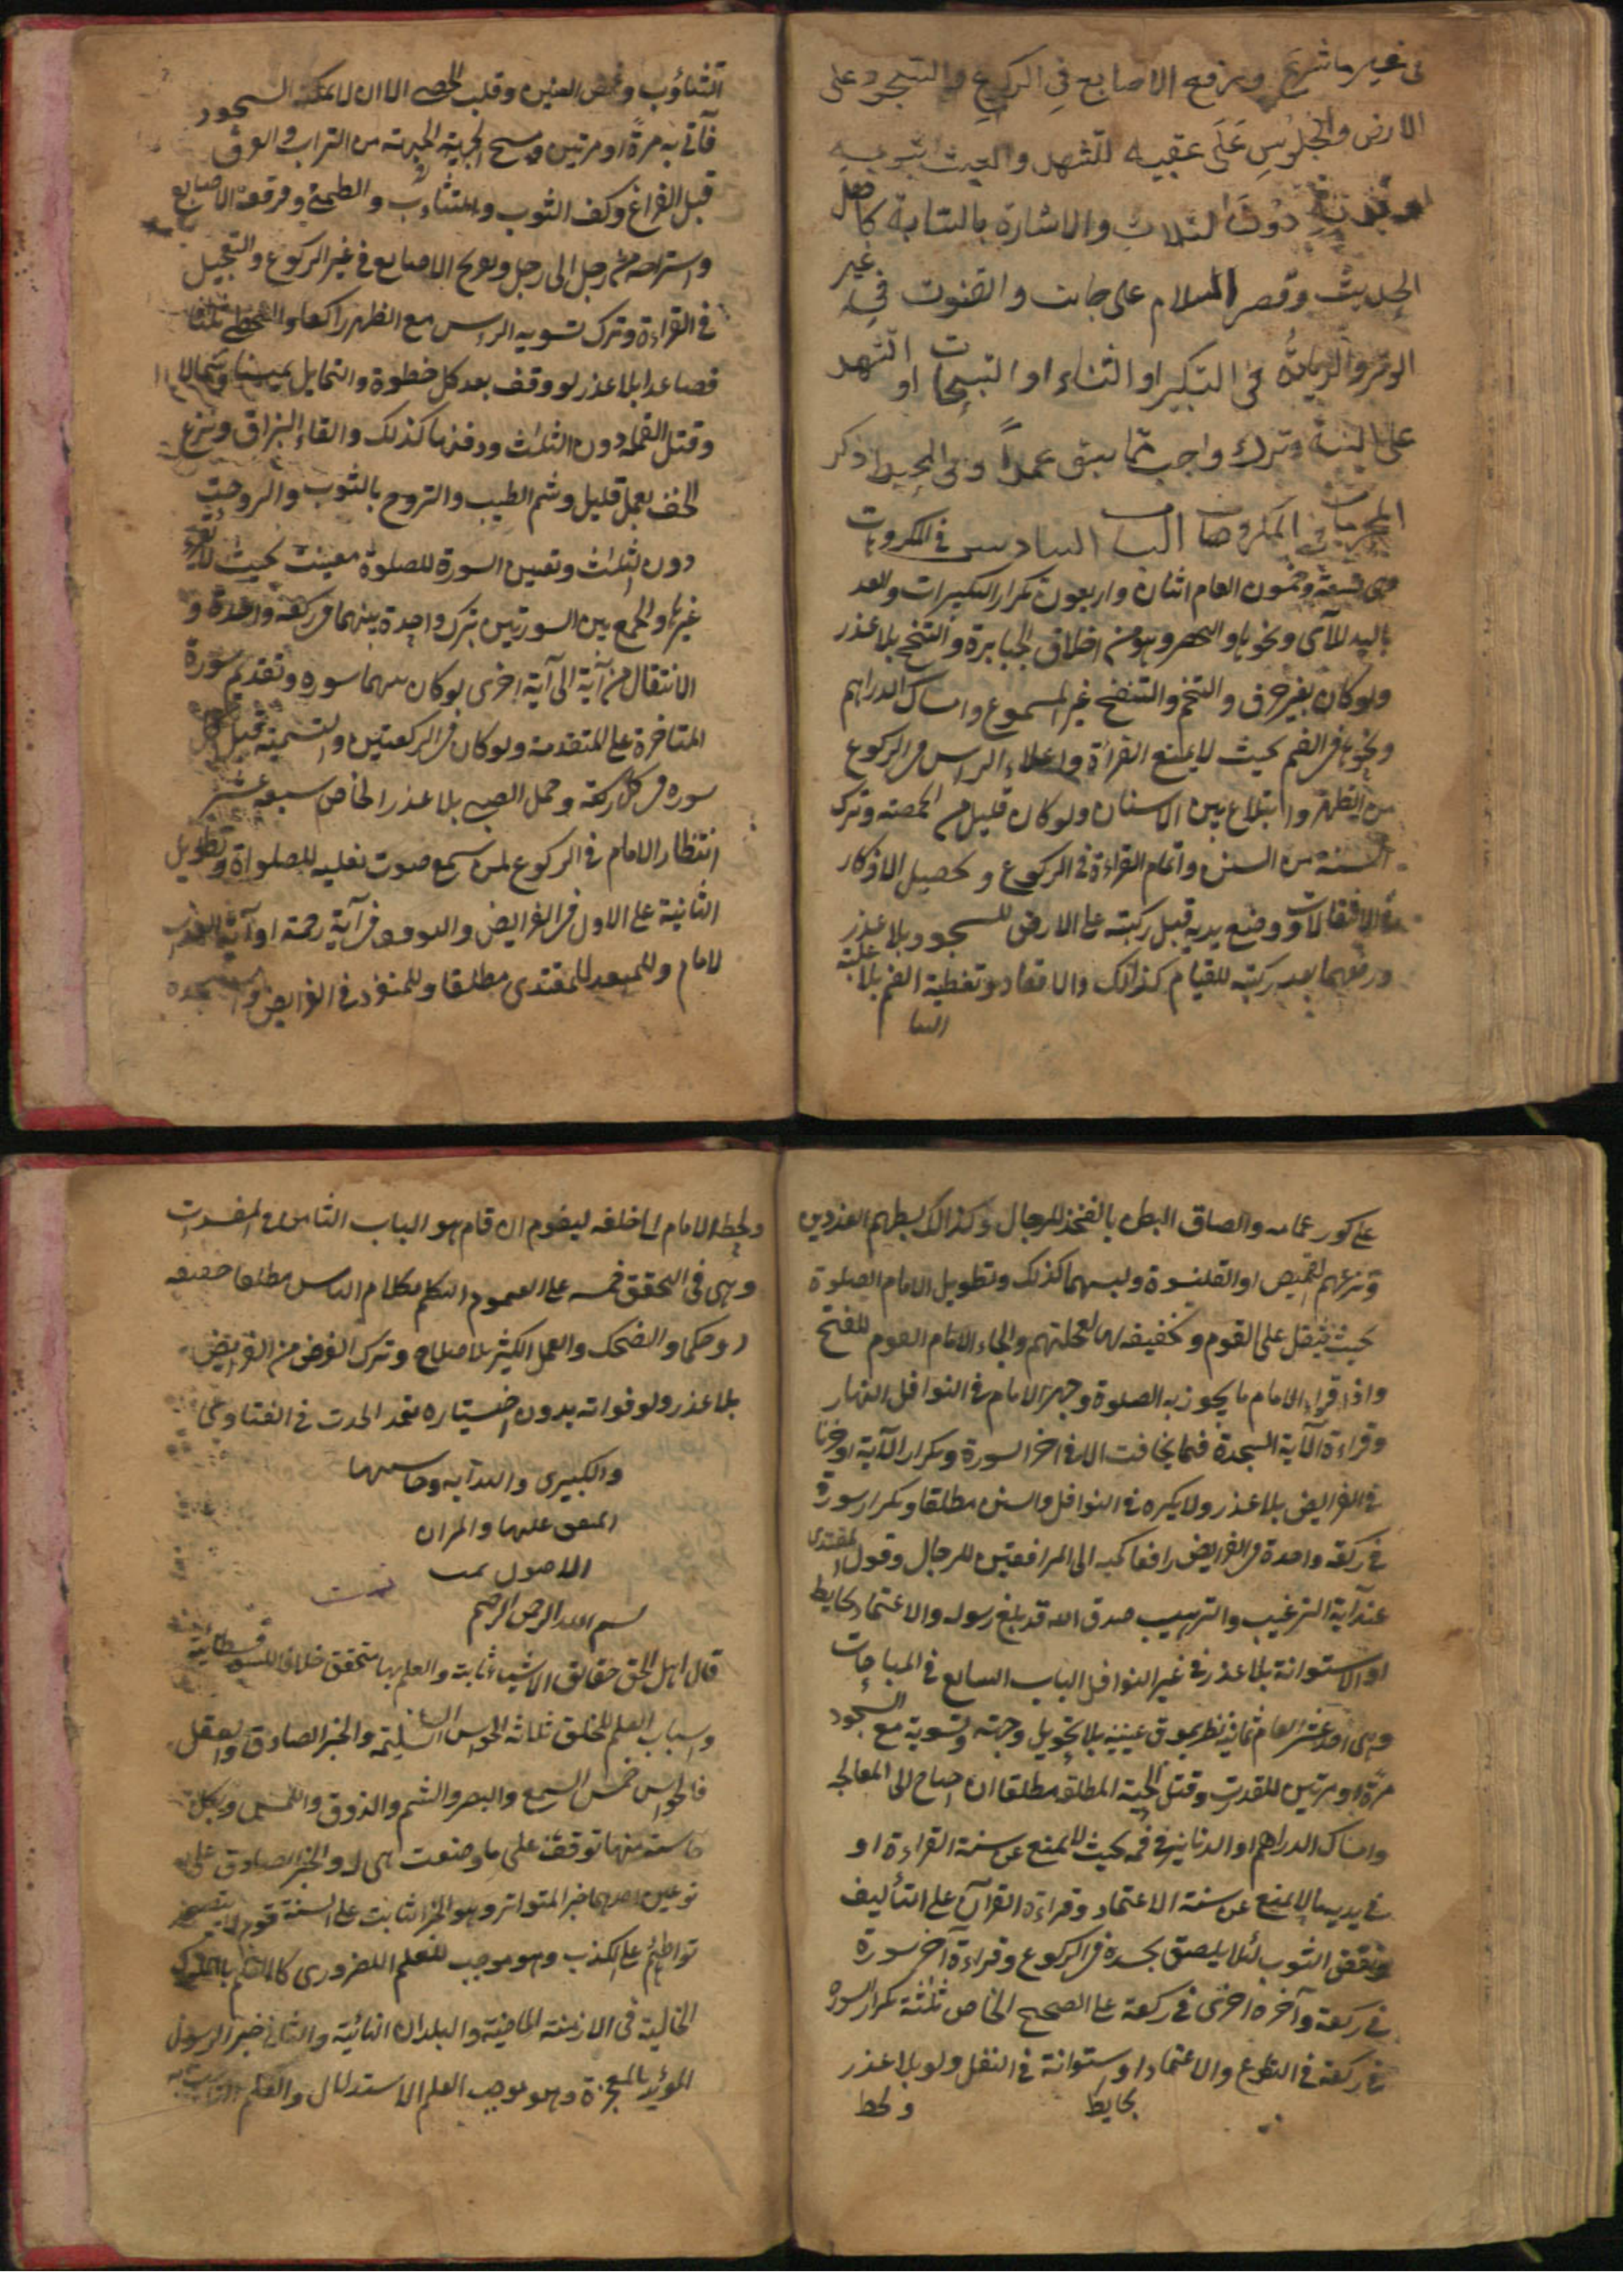 فى غير ما شرع ورفع الاصابع فى الركوع والسجود على
الارض والجلوس على عقبيه للتشهد والعبث بثوبه
دون الثلاث والاشارة بالسبابة كاهل
الحديث وقصر السلام على جانب والقنوت فى غير
الوتر والزيادة فى التكبير او الثناء او التسبيحات او التشهد
على السنة وترك واجب مما سبق عمداً وفى المحيط ذكر
المحرمات فى المكروهات الباب السادس فى المكروهات
وهى تسعة وخمسون العام اثنان واربعون تكرار التكبيرات والعد
باليد للآى ونحوها والتخصر وهو من اخلاق الجبابرة والتنحنح بلا عذر
ولو كان بغير حرف والتنخم والتنفخ غير المسموع وامساك الدراهم
ونحوها فى الفم بحيث لا يمنع القراءة واعلاء الراس فى الركوع
من الظهر وابتلاع بين الاسنان ولو كان قليل من الحمصة وترك
السنة من السنن واتمام القراءة فى الركوع وتحصيل الاذكار
فى الانتقالات ووضع يديه قبل ركبته على الارض للسجود بلا عذر
ورفعهما بعد ركبته للقيام كذالك والاقعاد وتغطية الفم بلا غلبة
التثاؤب وغمض العينين وقلب الحصى الا ان لا يمكنه السجود
فأتى به مرةً او مرتين ومسح الجبهة من التراب والعرق
قبل الفراغ وكف الثوب والتثاؤب والتمطى وفرقعة الاصابع
واستراحة من رجل الى رجل وتفريج الاصابع فى غير الركوع والتعجيل
فى القراءة وترك تسوية الراس مع الظهر راكعا والتخطى ثلثا
فصاعدا بلا عذر لو وقف بعد كل خطوة والتمايل يمينا وشمالا
وقتل القملة دون الثلث ودفنها كذلك والقاء البزاق ونزع
الخف بعمل قليل وشم الطيب والتروح بالثوب والمروحة
دون الثلث وتعيين السورة للصلوة معينة بحيث لا يقرء
غيرها والجمع بين السورتين بترك واحدة بينهما فى ركعة واحدة و
الانتقال من آية الى آية اخرى لو كان بينهما سورة وتقديم سورة
المتاخرة على المتقدمة ولو كان فى الركعتين والتسمية قبل كل
سورة فى كل ركعة وحمل الصبى بلا عذر الخاص سبعة عشر
انتظار الامام فى الركوع لمن سمع صوت نعليه للصلواة وتطويل
الثانية على الاول فى الفرايض والوقوف فى آية رحمة او آية العذاب
للامام وللمقتدى مطلقا وللمنفرد فى الفرايض والسجدة
على كور عمامه والصاق البطن بالفخذ للرجال وكذالك بسطهم العضدين
ونزعهم القميص او القلنسوة ولبسهما كذلك وتطويل الامام الصلوة
بحيث يثقل على القوم وتخفيفه لها لعجلتهم والجاء الامام القوم للفتح
واذا قراء الامام ما يجوز به الصلوة وجهر الامام فى النوافل النهار
وقراءة الآية السجدة فيما يخافت الا فى اخر السورة وتكرار الآية او حرفا
فى الفرايض بلا عذر ولا يكره فى النوافل والسنن مطلقا وتكرار سورة
فى ركعة واحدة فى الفرايض رافعا كميه الى المرافقين للرجال وقول المقتدى
عند آية الترغيب والترهيب صدق الله قد بلغ رسوله والاعتماد بحايط
او الاستوانة بلا عذر فى غير النوافل الباب السابع فى المباحات
وهى احد عشر العام ثمانية نظر بموق عينيه بلا تحويل وجهه وتسوية مع السجود
مرة او مرتين للقدرت وقتل الحية المطلق مطلقا ان احتاج الى المعالجة
وامساك الدراهم او الدنانير فى فمه بحيث لا يمنع عن سنة القراءة او
فى يديه لا يمنع عن سنة الاعتماد وقراءة القرآن على التأليف
ونفض الثوب لئلا يلصق بجسده فى الركوع وقراءة آخر سورة
فى ركعة وآخر اخرى فى ركعة على الصحيح الخاص ثلثة تكرار السورة
فى ركعة فى التطوع والاعتماد او ستوانة فى النفل ولو بلا عذر
بحايط
ولحظ
ولحظ الامام الى خلفه ليقوم ان قام هو الباب الثامن فى المفسدات
وهى فى التحقق خمسه على العموم التكلم بكلام الناس مطلقا حقيقه
او حكما والضحك والعمل الكثير بلا صلاح وترك الفرض من الفرايض
بلا عذر ولو فواته بدون اختياره تعمد الحدث فى الفتاوى
والكبيرى والهدايه وحاشيها
المتفق عليها والمزان
الاصول تمت
تمت
بسم الله الرحمن الرحيم
قال اهل الحق حقايق الاشياء ثابتة والعلم بها متحقق خلافا للسوفسطائية
واسباب العلم للخلق ثلاثة الحواس السليمة والخبر الصادق والعقل
فالحواس خمس السمع والبصر والشم والذوق واللمس وبكل
حاسة منها توقف على ما وضعت هى له والخبر الصادق على
نوعين احدهما خبر المتواتر وهو الخبر الثابت على السنة قوم لا يتصور
تواطئهم على الكذب وهو موجب للعلم الضرورى كالعلم بالملوك
الخالية فى الازمنة الماضية والبلدان النائية والثانى خبر الرسول
المؤيد بالمعجزة وهو يوجب العلم الاستدلال والعلم الثابت به